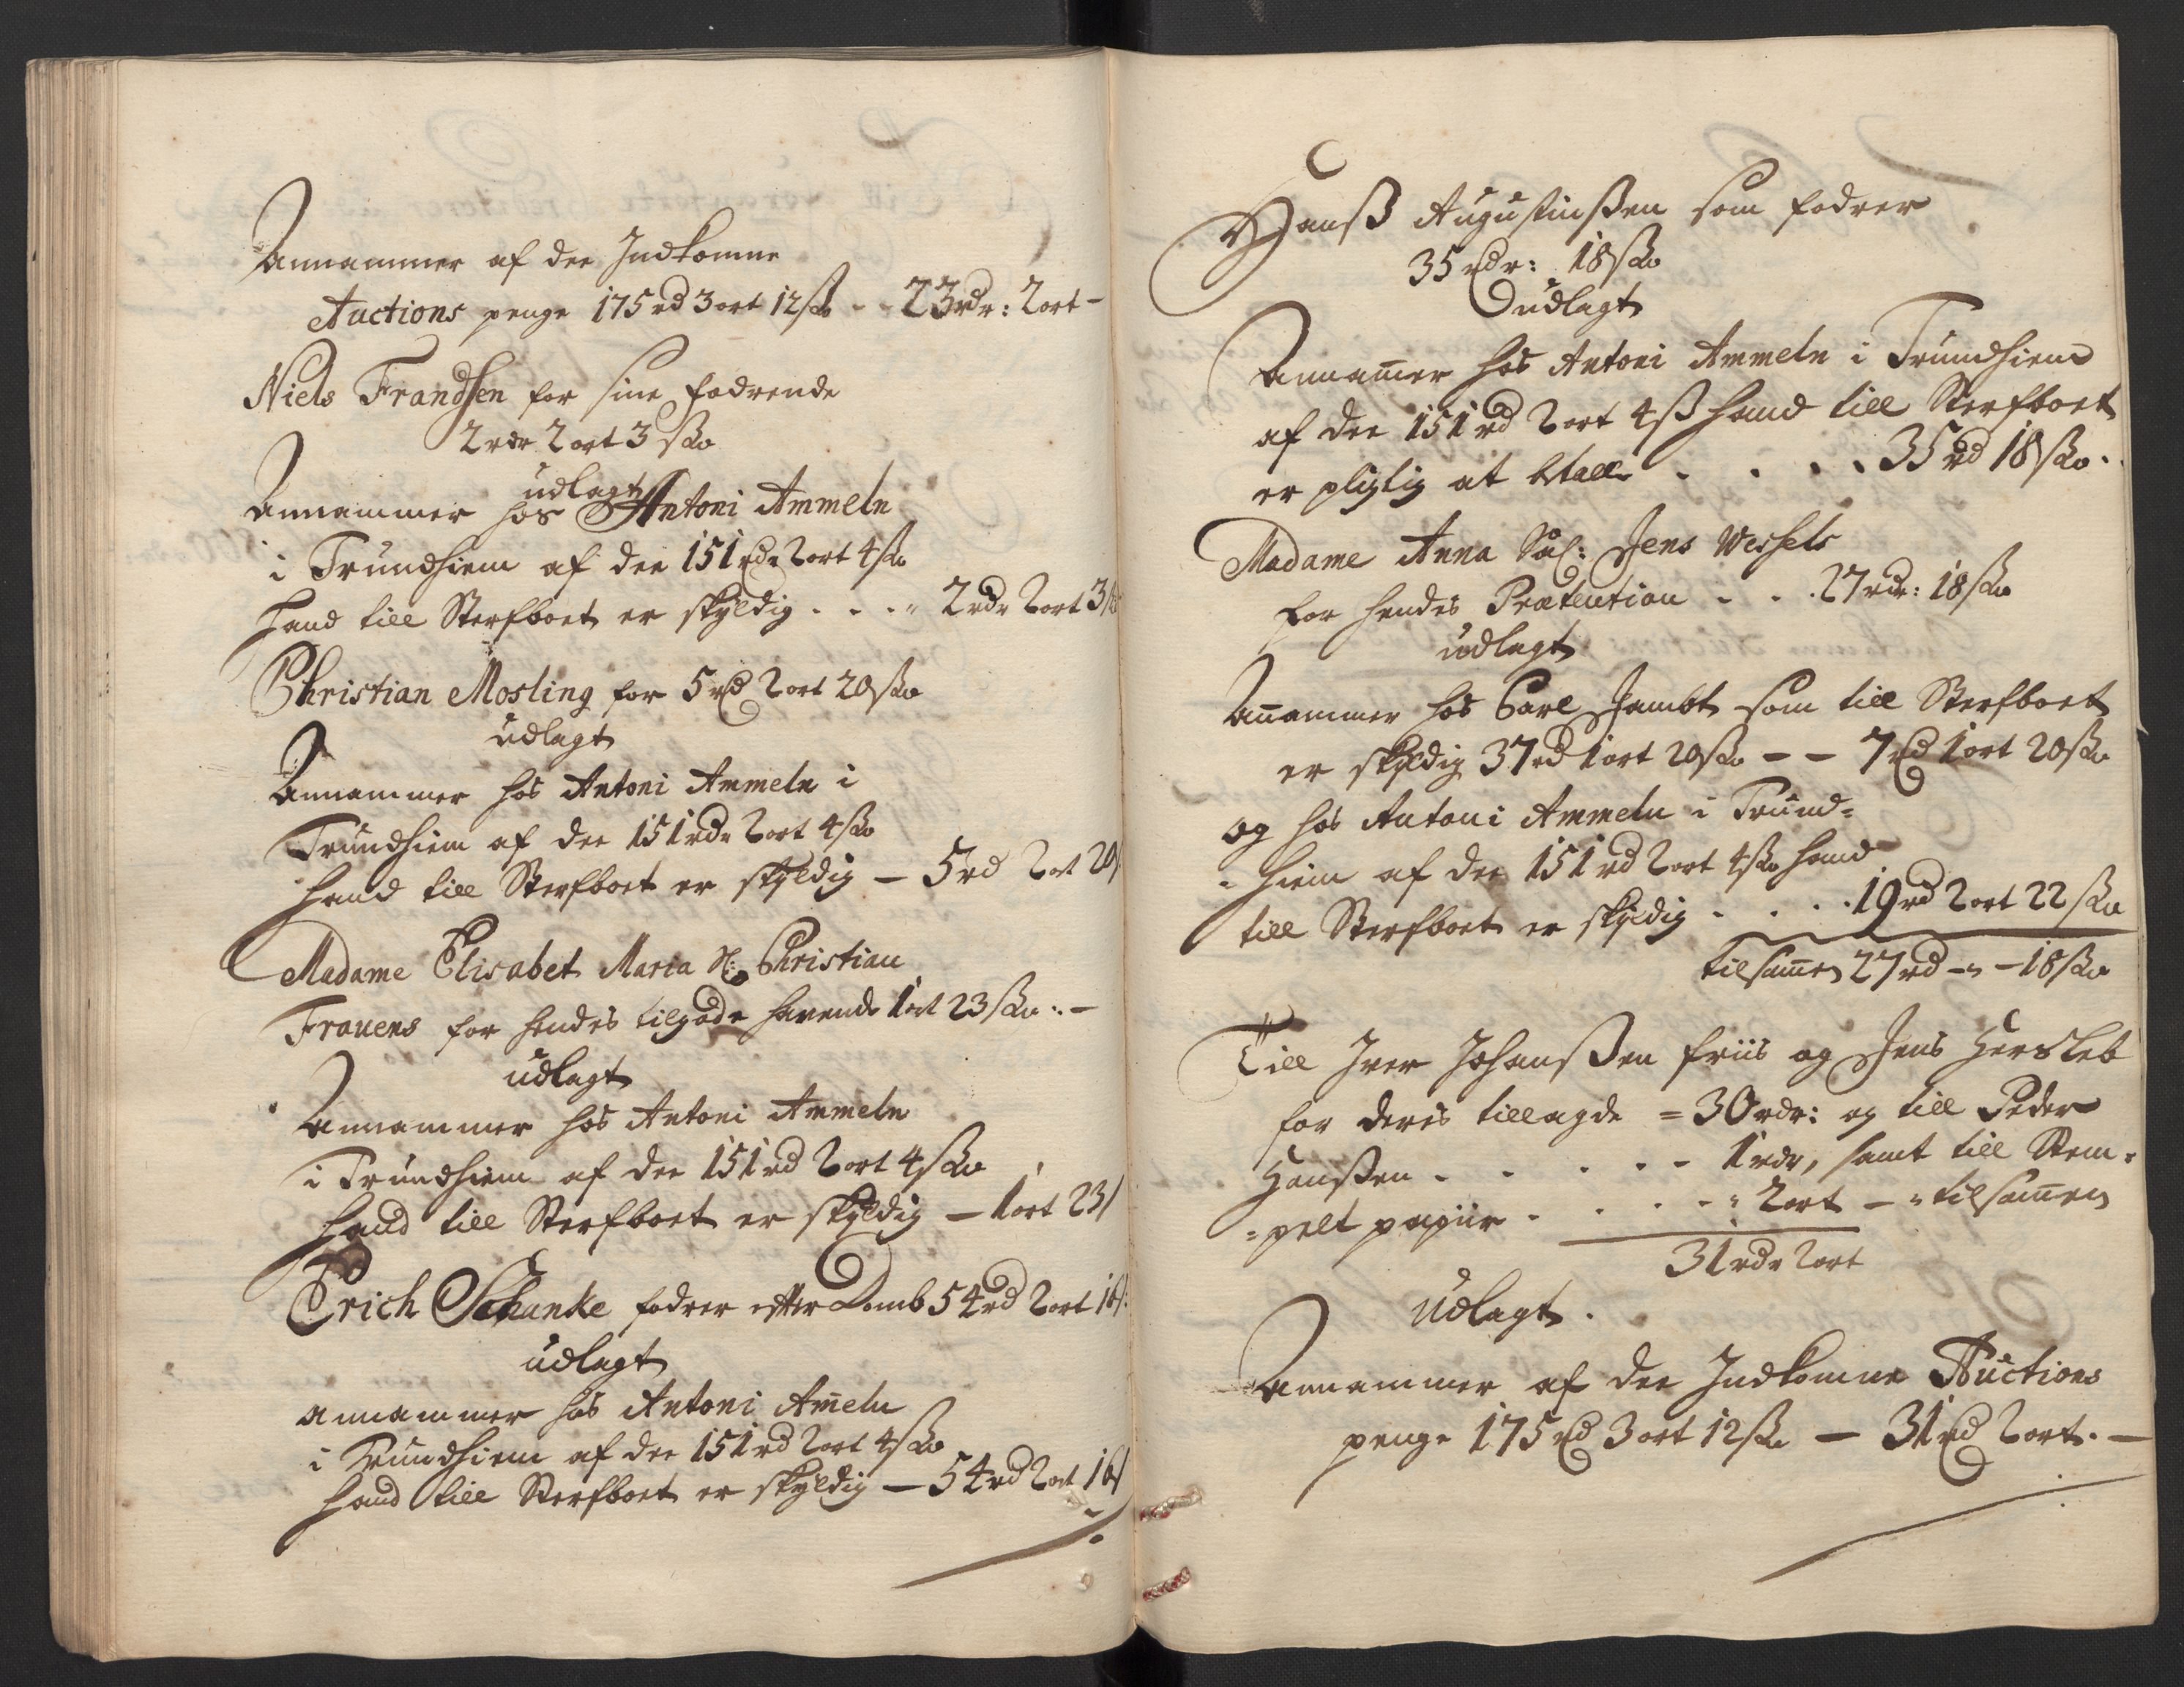 Annammer af dee Indkomne
Auctions penge 175 rd 3 ort 12 sk - - 23 rdr: 2 ort -
Niels Frandsen for sine fodrende
2 rdr 2 ort 3 sk
udlagt
Annammer hos Antoni Ammeln
i Trundhiem af dee 151 rdr 2 ort 4 sk
hand till Sterfboet er skyldig - - - 2 rdr 2 ort 3 sk
Christian Mosling for 5 rd 2 ort 20 sk
udlagt
Annammer hos Antoni Ammeln i
Trundhiem af dee 151 rdr 2 ort 4 sk
hand till Sterfboet er skyldig - 5 rd 2 ort 20 s
Madame Elisabet Maria Sl: Christian
Frauens for hendes tilgode hafvende 1 ort 23 sk: -
udlagt
Annammer hos Antoni Ammeln
i Trundhiem af dee 151 rd 2 ort 4 sk
hand till Sterfboet er skyldig - 1 ort 23 s
Erich Schanke fodrer efter Domb 54 rd 2 ort 16 s:
udlagt
annammer hos Antoni Am̅eln
i Trundhiem af dee 151 rd 2 ort 4 sk
hand till Sterfboet er skyldig - 54 rd 2 ort 16 s
Hanß Augustinßen som fodrer
35 rdr: 18 sk
udlagt
Annam̅er hos Antoni Ammeln i Trundhiem
af dee 151 rd 2 ort 4 ß hand till Sterfboet
er pligtig at btalle - - - - 35 rd 18 sk.
Madame Anna Sal: Jens Wessels
for hendes Prætention - - 27 rdr: 18 sk
udlagt
An̅ammer hos Carl Jambt som till Sterfboet
er skyldig 37 rd 1 ort 20 sk - - 7 rd 1 ort 20 sk
og hos Antoni Ammeln i Trund=
=hiem af dee 151 rd 2 ort 4 sk hand
till Sterfboet er skyldig - - - 19 rd 2 ort 22 sk
tilsam̅en 27 rd - - 18 sk
Till Iver Johanßen friis og Jens Hersleb
for deres tillagde = 30 rdr: og till Peder
Hanßen - - - - - 1 rdr, samt till Stem=
=pelt papiir - - - - - 2 ort - tilsam̅en
31 rdr 2 ort
Udlagt.
Annammer af dee Indkomne Auctions
penge 175 rd 3 ort 12 sk - 31 rd 2 ort. -